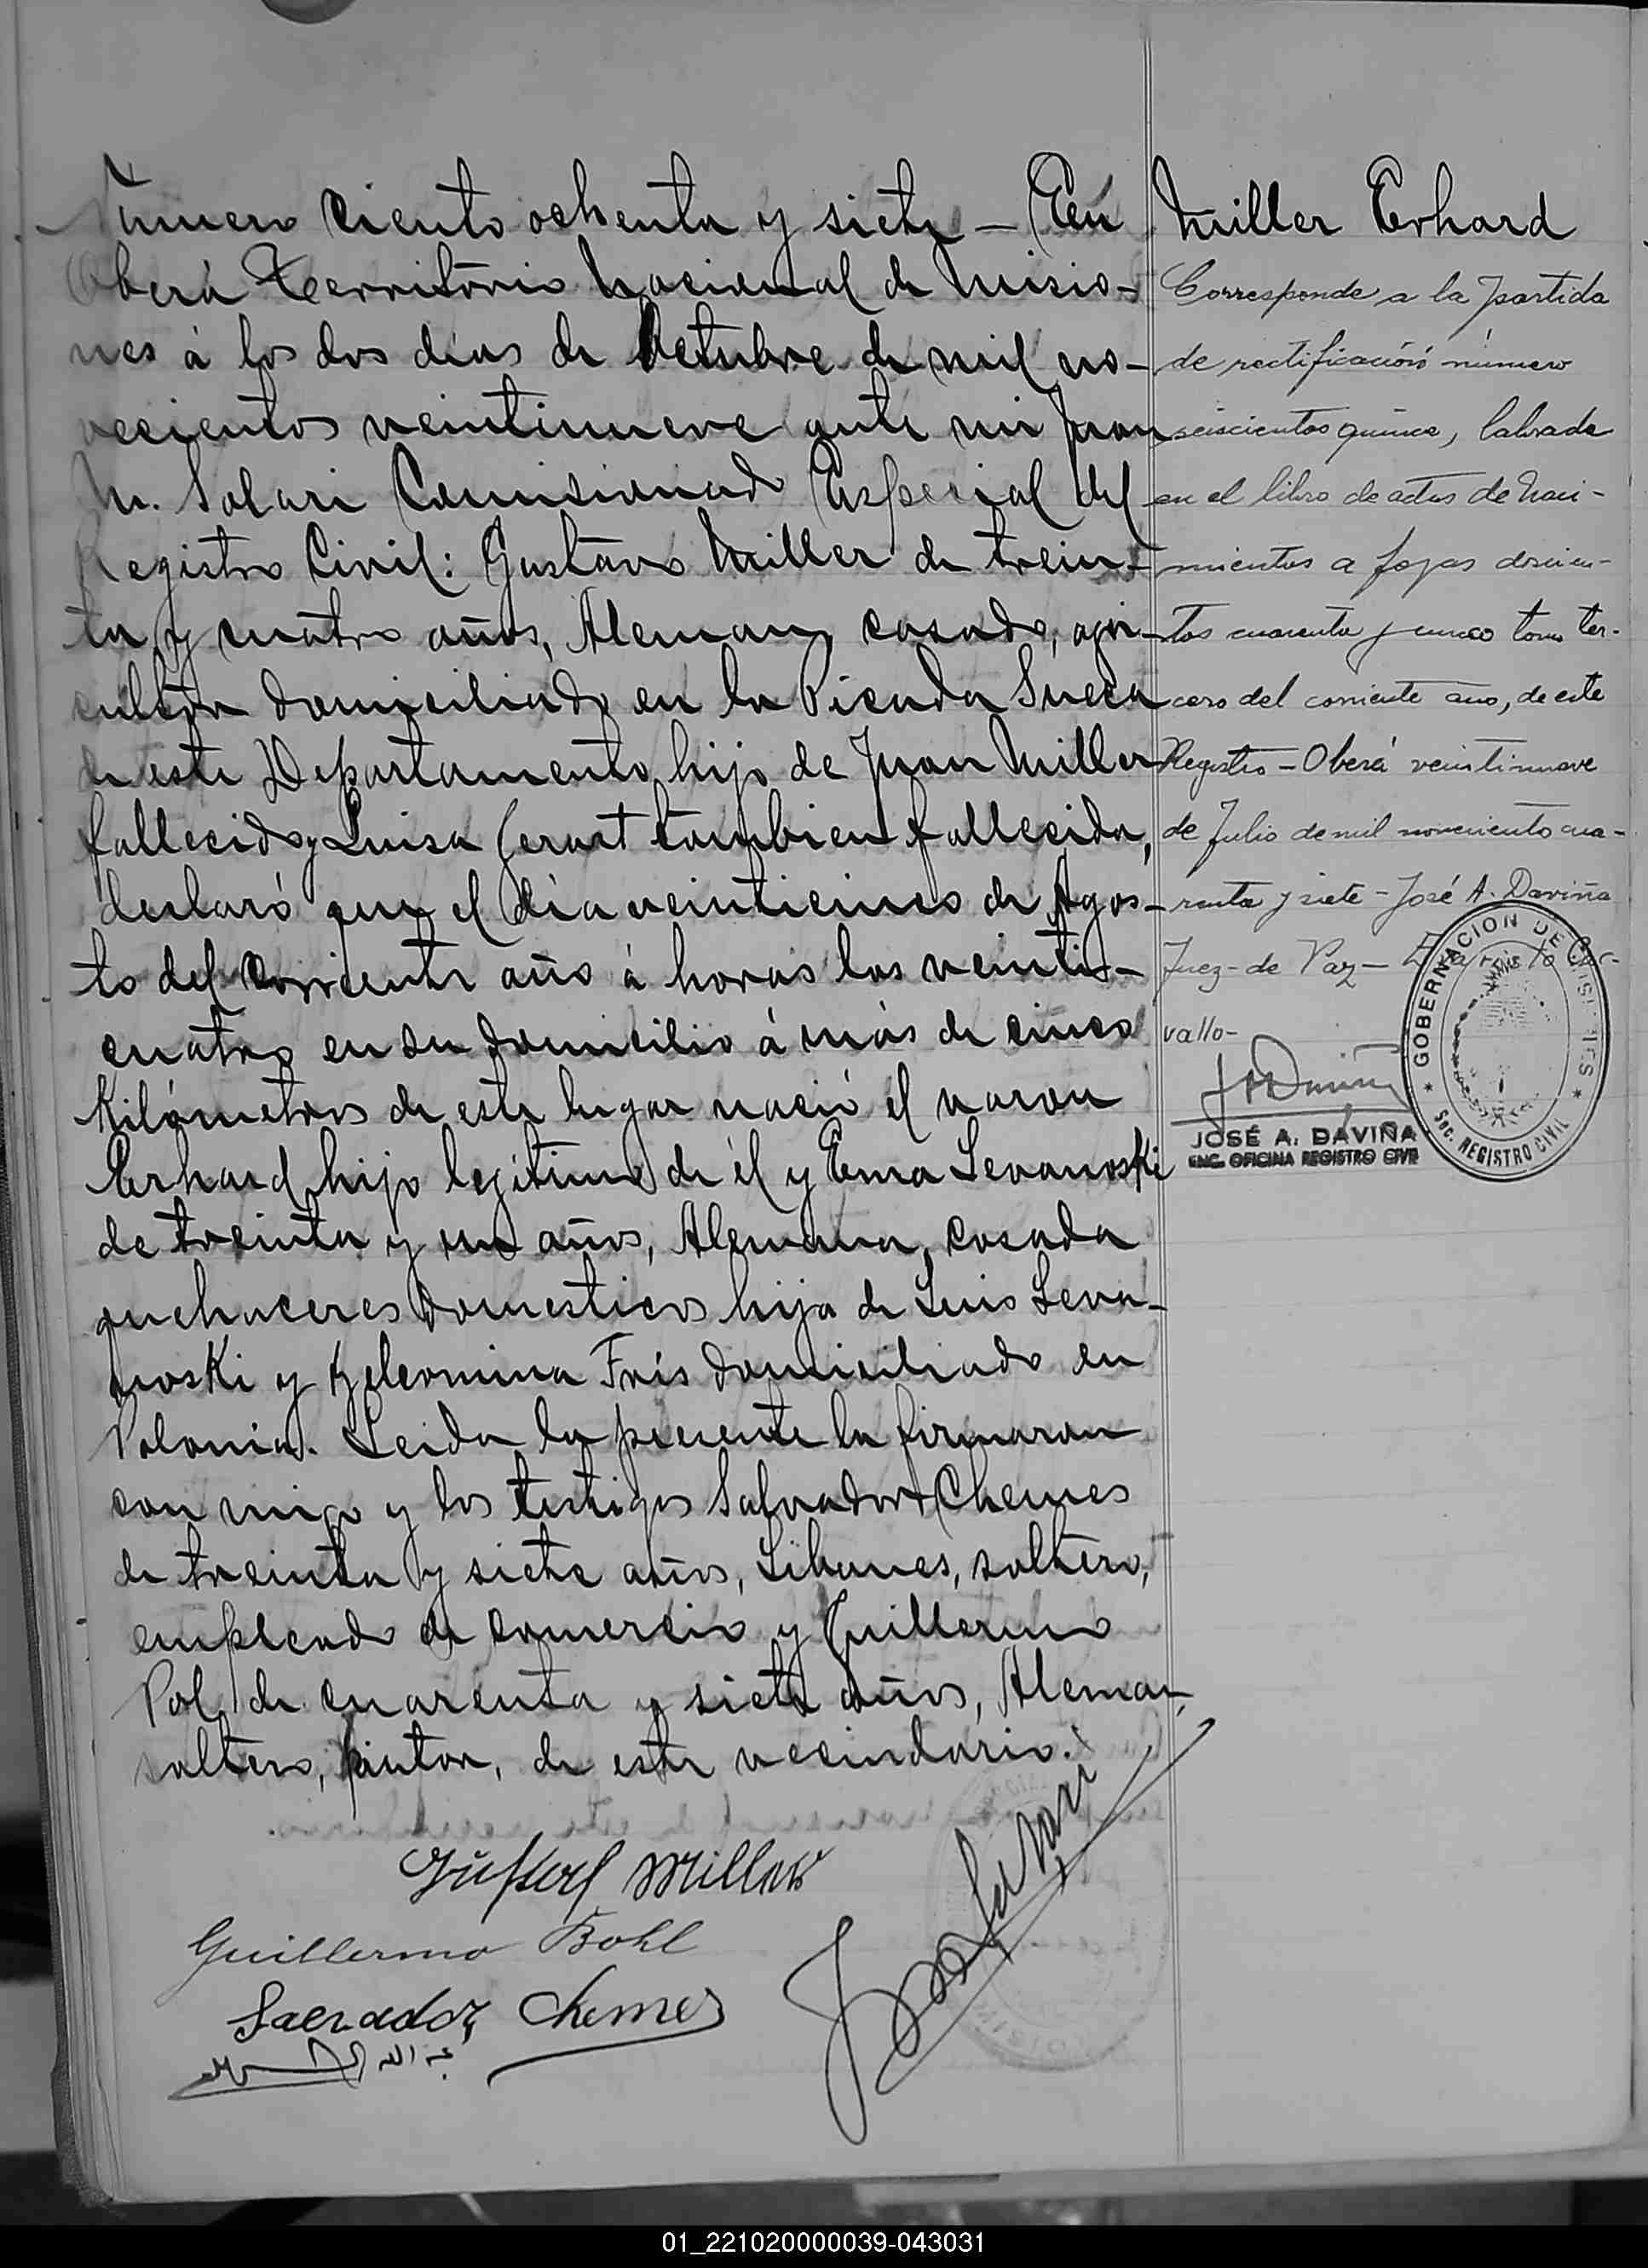 Número ciento ochenta y siete – En
Oberá Territorio Nacional de Misio-
nes á los dos dias de Octubre de mil no-
vecientos veintinueve ante mi Juan
M. Solari Comisionado Especial del
Registro Civil: Gustavo Miller de trein-
ta y cuatro años, Aleman, casado, agri-
cultor domiciliado en la Picada Sueca
de este Departamento, hijo de Juan Miller
fallecido y Luisa tambien fallecida,
declaró que el dia veinticinco de Agos-
to del corriente año á horas las veinti-
cuatro en su domicilio á más de cinco
Kilómetros de este lugar nació el varon
Erhard, hijo legítimo de él y Ema Levanoski
de treinta y un años, Alemana, casada
quehaceres domesticos hija de Luis Leva-
noski y Frís domiciliado en
Polonia. Leida la presente la firmaron
con migo y los testigos Salvador Chemes
de treinta y siete años, Libanes, soltero,
empleado de comercio y Guillermo
Pol de cuarenta y siete años, Aleman,
soltero, pintor, de este vecindario.
Gustav Miller
Guillermo Bohl
Salvador Chemes
Miller Erhard
Corresponde a la partida
de rectificación número
seiscientos quince, labrada
en el libro de actas de Naci-
mientos a fojas doscien-
tos cuarenta y cinco tomo ter-
cero del corriente año, de este
Registro – Oberá veintinueve
de Julio de mil novecientos cua-
renta y siete – José A. Daviña
Juez de Paz –
vallo-
JOSÉ A. DAVIÑA
ENC. OFICINA REGISTRO CIVIL
GOBERNACION DE MISIONES
SEC. REGISTRO CIVIL
01_221020000039-043031